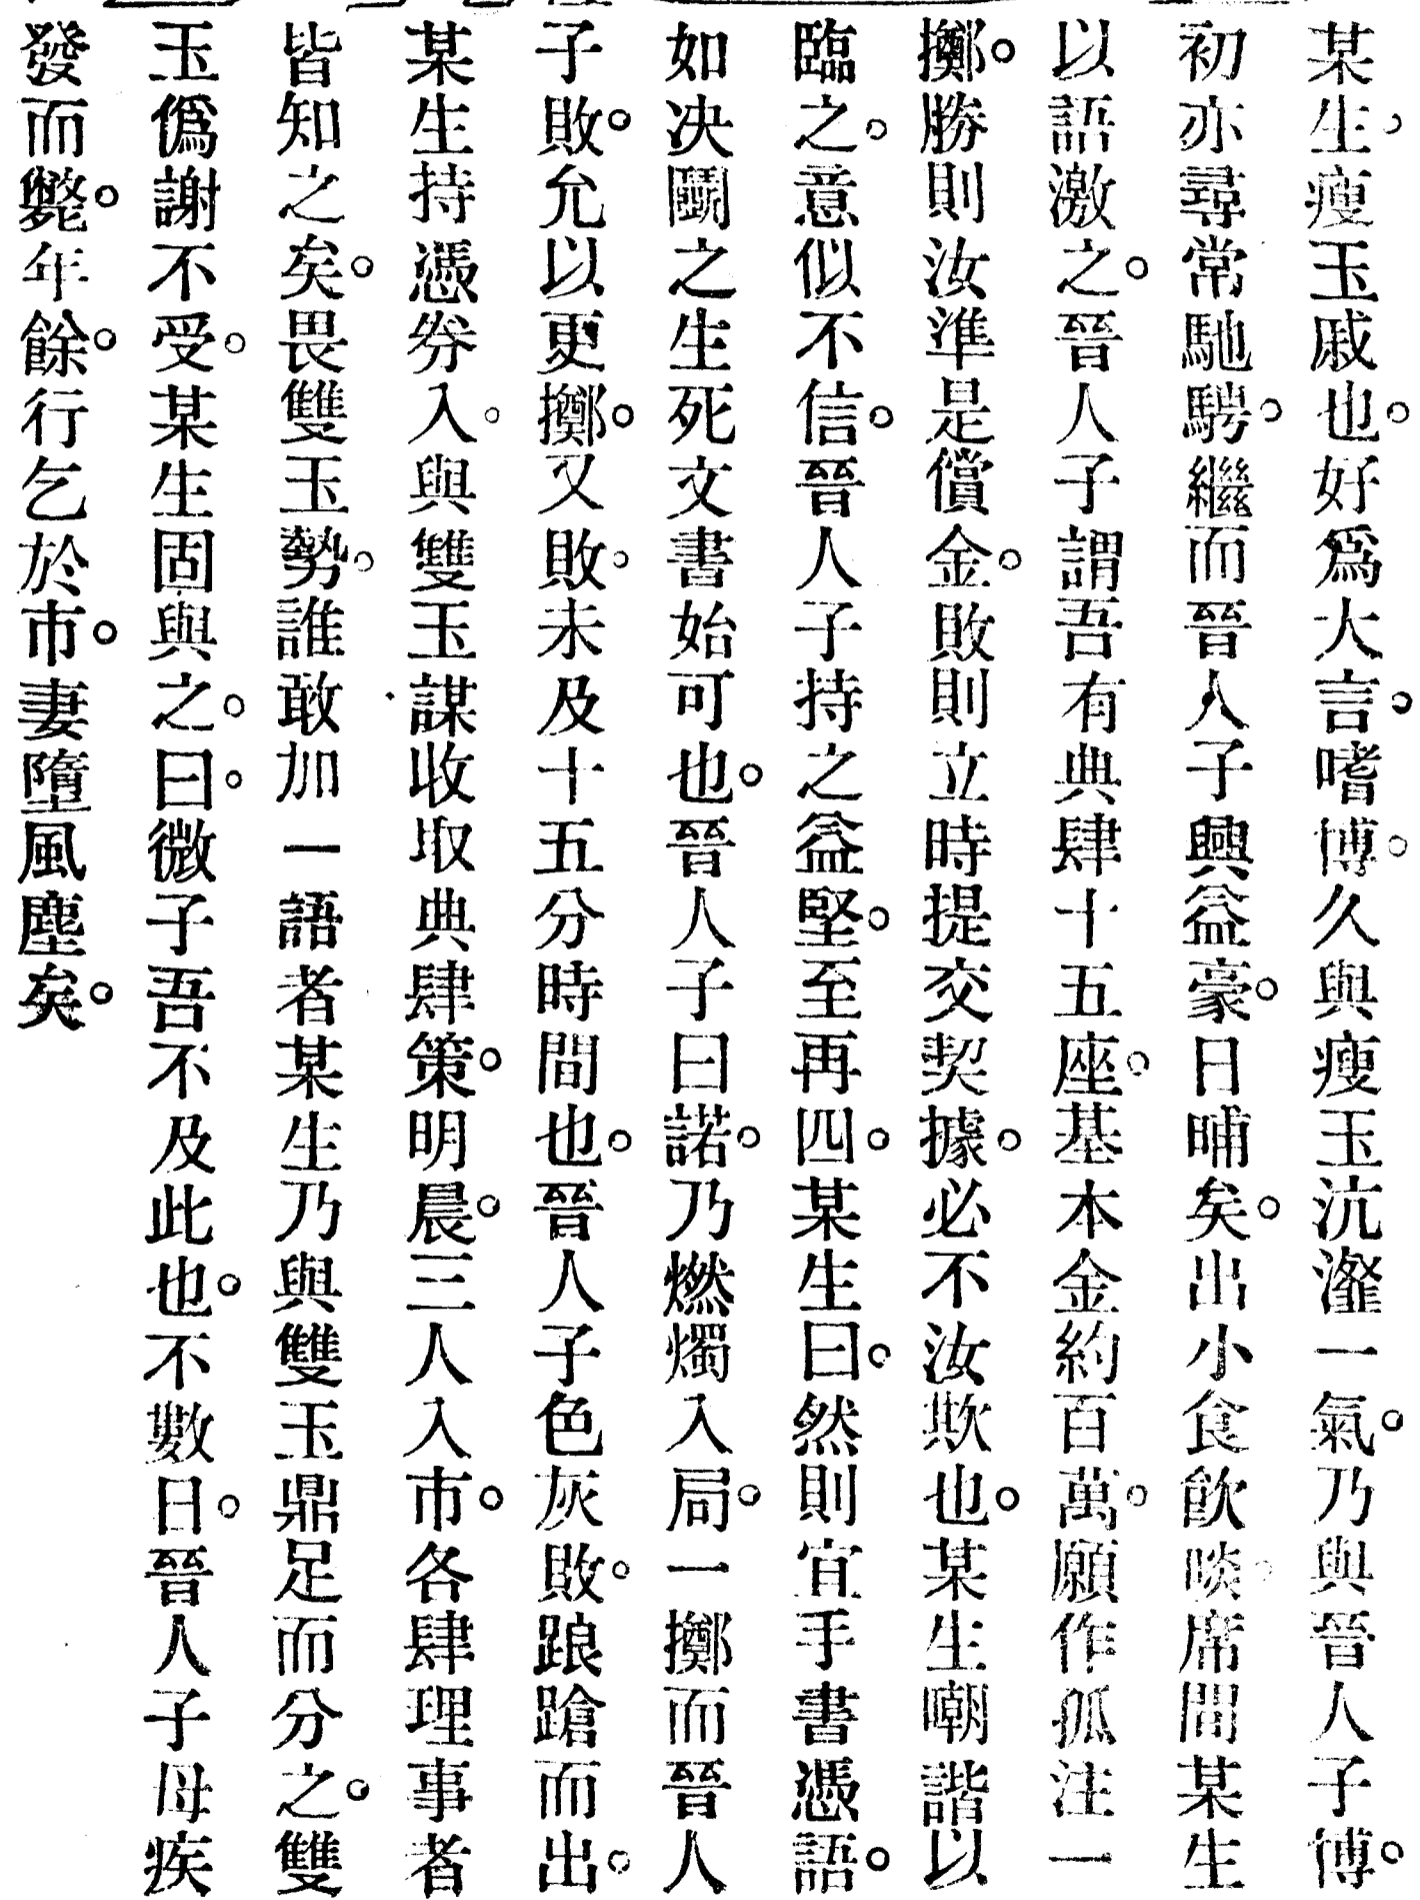 某生。瘦玉戚也。好爲大言。嗜博。久與瘦玉沆瀣一氣。乃與晉人子博。
初亦尋常馳騁。繼而晉人子興益豪。日晡矣。出小食飮啖。席間某生
以語激之。晉人子謂吾有典肆十五座。基本金約百萬。願作孤注一
擲。勝則汝準是償金。敗則立時提交契據。必不汝欺也。某生嘲諧以
臨之。意似不信。晉人子持之益堅。至再四。某生曰。然則宜手書憑語。
如決鬭之生死文書始可也。晉人子曰諾。乃燃燭入局。一擲而晉人
子敗。允以更擲。又敗。未及十五分時間也。晉人子色灰敗。踉蹌而出。
某生持憑券入。與雙玉謀收取典肆策。明晨。三人入市。各肆理事者
皆知之矣。畏雙玉勢。誰敢加一語者某生乃與雙玉鼎足而分之。雙
玉僞謝不受。某生固與之。曰。微子吾不及此也。不數日。晉人子母疾
發而斃。年餘。行乞於市。妻墮風塵矣。